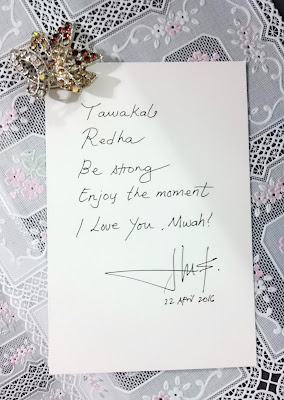 Tawakal
Redha
Be strong
Enjoy the moment
I Love You. Mwah!
22 April 2016